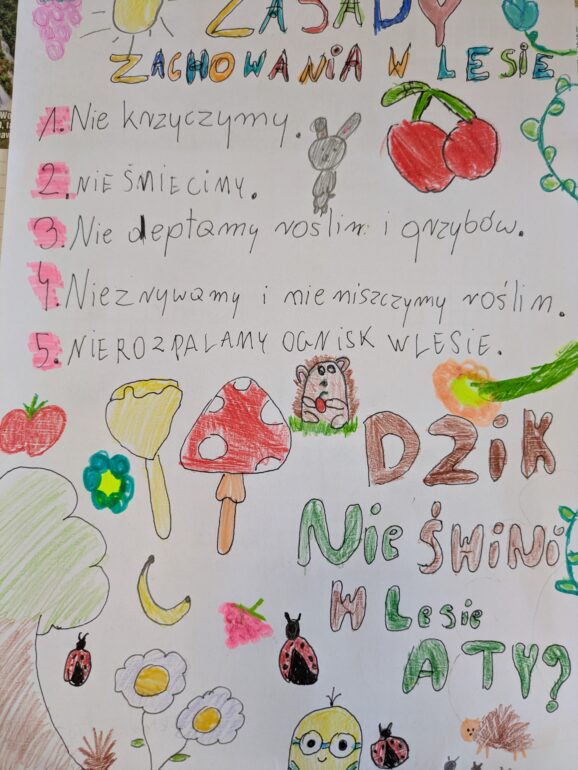 ZASADY
ZACHOWANIA W LESIE
1. Nie krzyczymy.
2. NIE ŚMIECIMY.
3. Nie deptamy roślin i grzybów.
4. Nie zrywamy i nie niszczymy roślin.
5. NIE ROZPALAMY OGNISK W LESIE.
DZIK
Nie ŚWINI
W Lesie
A TY?